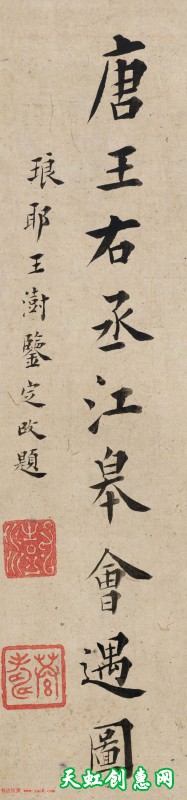 唐王右丞江皋會遇圖
琅耶王澍鑒定改題
天虹创意网